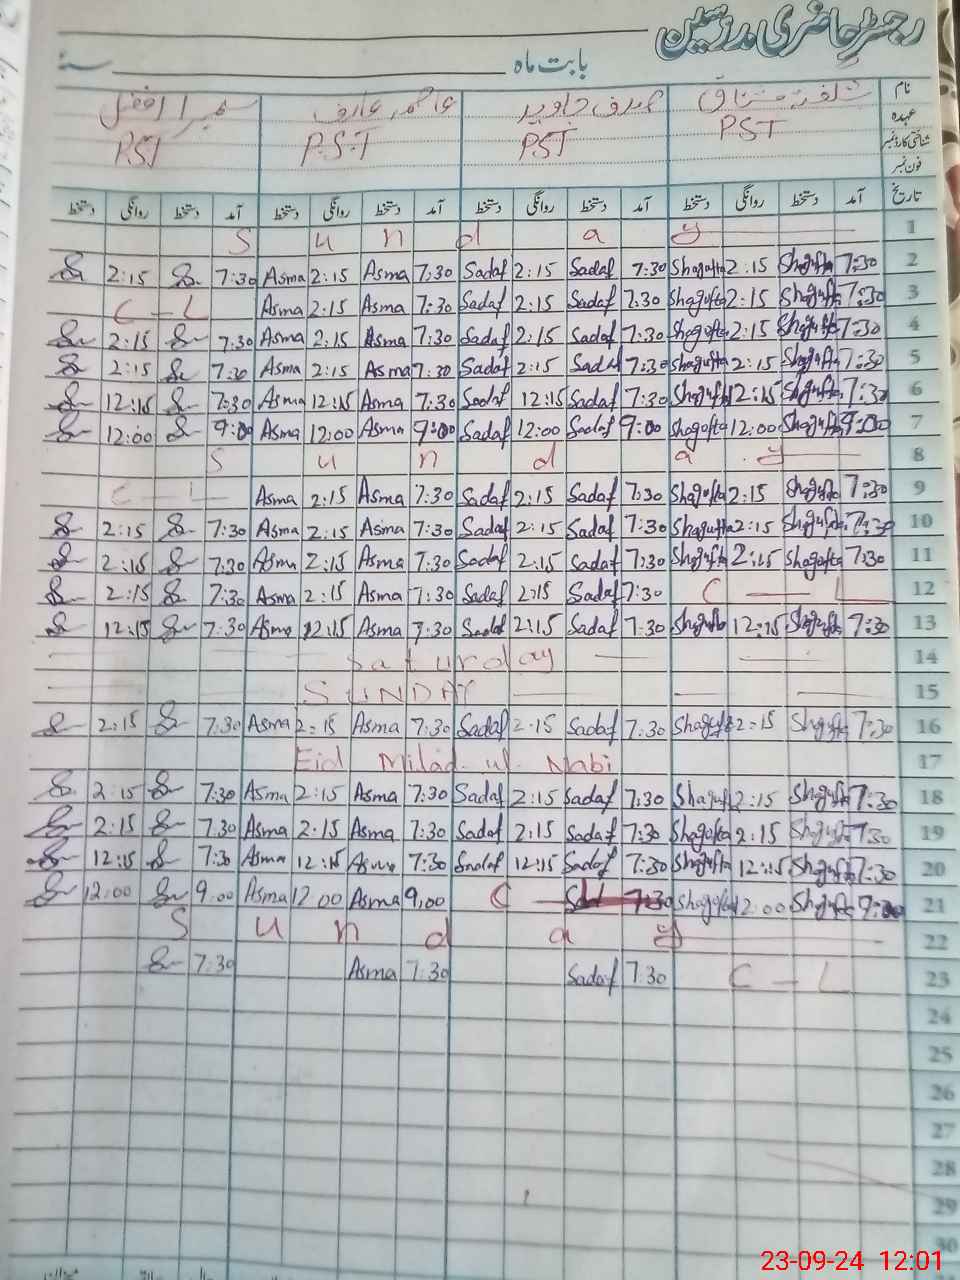 رجسٹر حاضری مدرسین
بابت ماہ سنہ
نام شگفتہ مشتاق صدف جاوید عاصمہ عارف سمیرا افضل
عہدہ PST PST P.S.T PST
شناختی کارڈ نمبر
فون نمبر
تاریخ آمد دستخط روانگی دستخط آمد دستخط روانگی دستخط آمد دستخط روانگی دستخط آمد دستخط روانگی دستخط
S u n d a y 1
2:15 7:30 Asma 2:15 Asma 7:30 Sadaf 2:15 Sadaf 7:30 Shagufta 2:15 Shagufta 7:30 2
C - L Asma 2:15 Asma 7:30 Sadaf 2:15 Sadaf 7:30 Shagufta 2:15 Shagufta 7:30 3
2:15 7:30 Asma 2:15 Asma 7:30 Sadaf 2:15 Sadaf 7:30 Shagufta 2:15 Shagufta 7:30 4
2:15 7:30 Asma 2:15 Asma 7:30 Sadaf 2:15 Sadaf 7:30 Shagufta 2:15 Shagufta 7:30 5
12:15 7:30 Asma 12:15 Asma 7:30 Sadaf 12:15 Sadaf 7:30 Shagufta 12:15 Shagufta 7:30 6
12:00 9:00 Asma 12:00 Asma 9:00 Sadaf 12:00 Sadaf 9:00 Shagufta 12:00 Shagufta 9:00 7
S u n d a y 8
C - L Asma 2:15 Asma 7:30 Sadaf 2:15 Sadaf 7:30 Shagufta 2:15 Shagufta 7:30 9
2:15 7:30 Asma 2:15 Asma 7:30 Sadaf 2:15 Sadaf 7:30 Shagufta 2:15 Shagufta 7:30 10
2:15 7:30 Asma 2:15 Asma 7:30 Sadaf 2:15 Sadaf 7:30 Shagufta 2:15 Shagufta 7:30 11
2:15 7:30 Asma 2:15 Asma 7:30 Sadaf 2:15 Sadaf 7:30 C - L 12
12:15 7:30 Asma 12:15 Asma 7:30 Sadaf 2:15 Sadaf 7:30 Shagufta 12:15 Shagufta 7:30 13
Saturday 14
SUNDAY 15
2:15 7:30 Asma 2:15 Asma 7:30 Sadaf 2:15 Sadaf 7:30 Shagufta 2:15 Shagufta 7:30 16
Eid Milad ul Nabi 17
2:15 7:30 Asma 2:15 Asma 7:30 Sadaf 2:15 Sadaf 7:30 Shagufta 2:15 Shagufta 7:30 18
2:15 7:30 Asma 2:15 Asma 7:30 Sadaf 2:15 Sadaf 7:30 Shagufta 2:15 Shagufta 7:30 19
12:15 7:30 Asma 12:15 Asma 7:30 Sadaf 12:15 Sadaf 7:30 Shagufta 12:15 Shagufta 7:30 20
12:00 9:00 Asma 12:00 Asma 9:00 C 7:30 Shagufta 12:00 Shagufta 9:00 21
S u n d a y 22
7:30 Asma 7:30 Sadaf 7:30 C - L 23
24
25
26
27
28
29
30
23-09-24 12:01